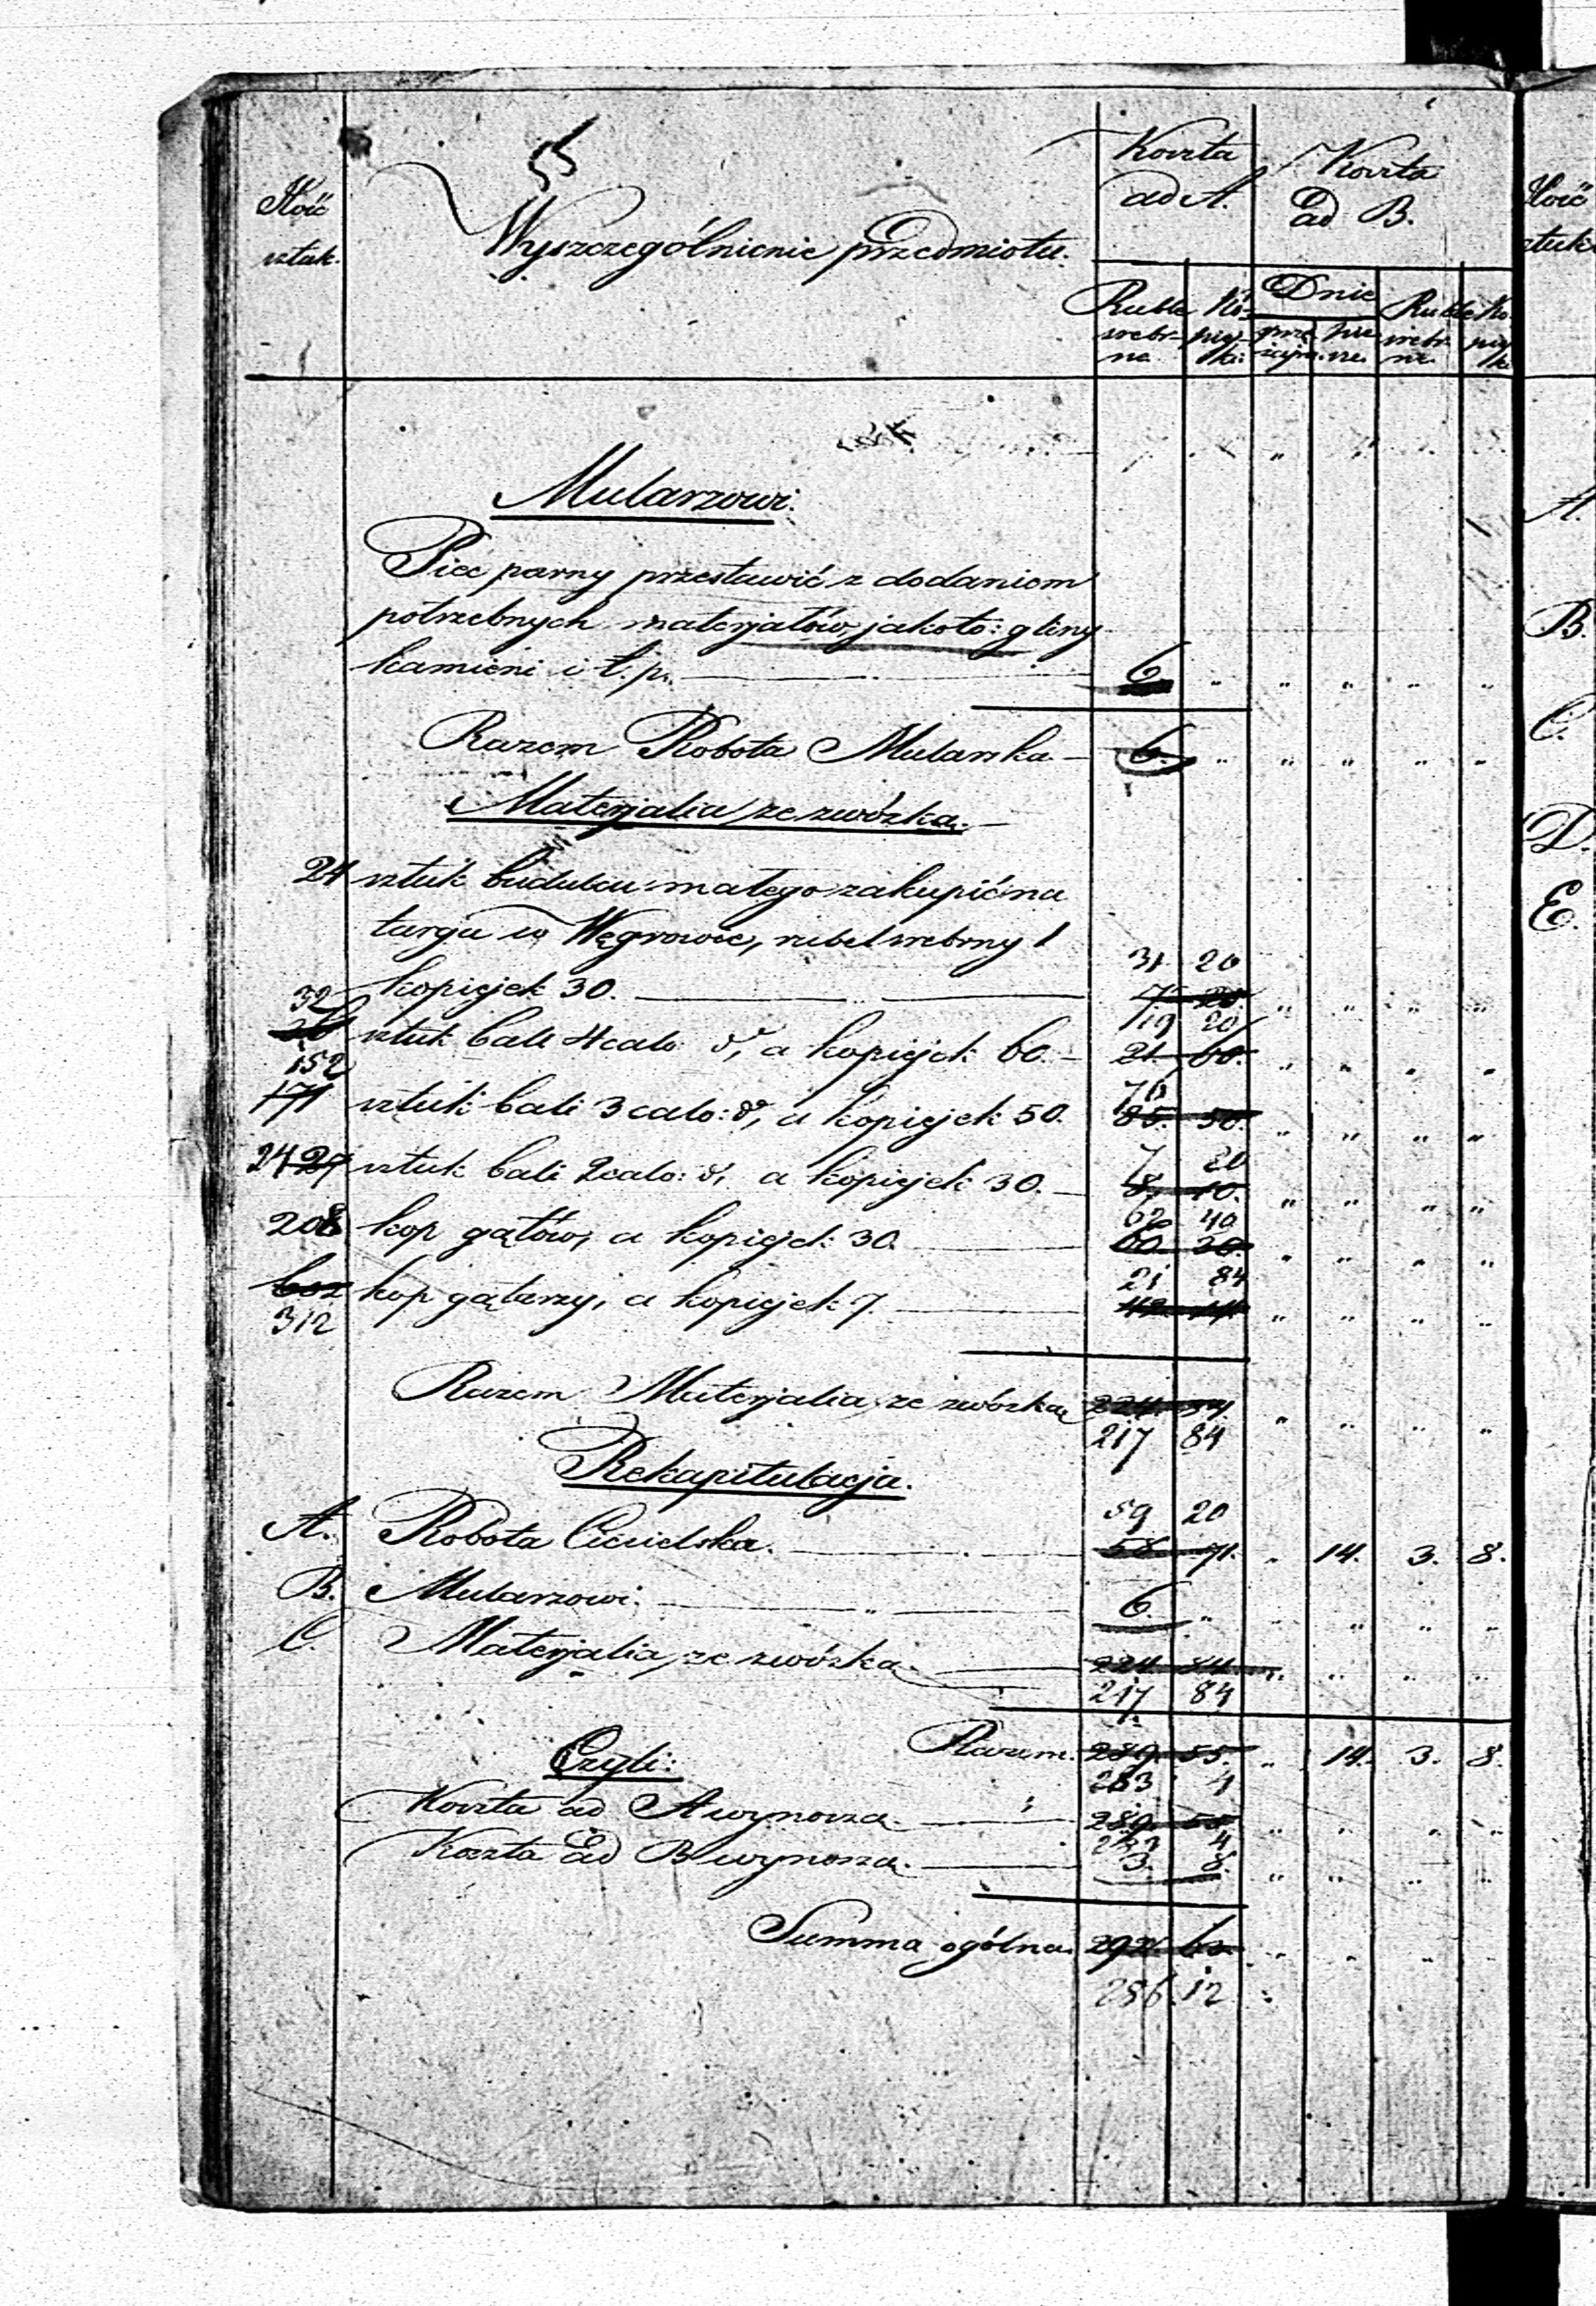 55
Ilość sztuk. Wyszczególnienie przedmiotu. Koszta ad A. Koszta ad B.
Ruble srebrne Kopiejki Dnie Ruble srebrne Kopiejk
piesze
Mularzowi.
Piec parny przestawić z dodaniem
potrzebnych materjałów, jakoto: gliny
kamieni i t. p. 6 " " " " "
Razem Robota Mularska 6. " " " " "
Materjalia ze zwózką.
24 sztuk budulcu małego zakupić na
targu w Węgrowie, rubel srebrny 1
31 20
kopiejek 30. 7 20 " " " "
32 19 20
sztuk bali 4 calo: a kopiejek 60. 21. 60. " " " "
152 76
171 sztuk bali 3 calo: a kopiejek 50. 85. 50. " " " "
7 20
24 27 sztuk bali 2 calo: a kopiejek 30. 8. 10. " " " "
62 40
208 kop gątów, a kopiejek 30. 60. 30. " " " "
21 84
602 kop gątarzy, a kopiejek 7. 42. 14. " " " "
312
Razem Materjalia ze zwózką 224. 84. " " " "
217 84
Rekapitulacja.
59 20
A. Robota Ciesielska. 58. 71. " 14. 3. 8.
B. Mularzowi. 6. " " " " "
C. Materjalia ze zwózką 224. 84. " " " "
217 84
Razem. 289. 55. " 14. 3. 8.
Czyli: 283 4
Koszta ad A wynosza. 289. 55. " " " "
283 4
Koszta ad B wynosza. 3. 8. " " " "
Summa ogólna. 292. 63. " " " "
286. 12
Ilość
sztuk
A.
B.
C.
D.
E.